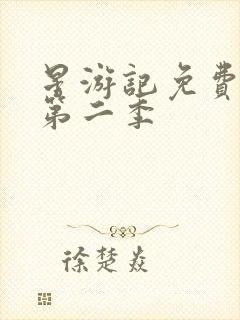 星游記免費
第二季
徐楚焱